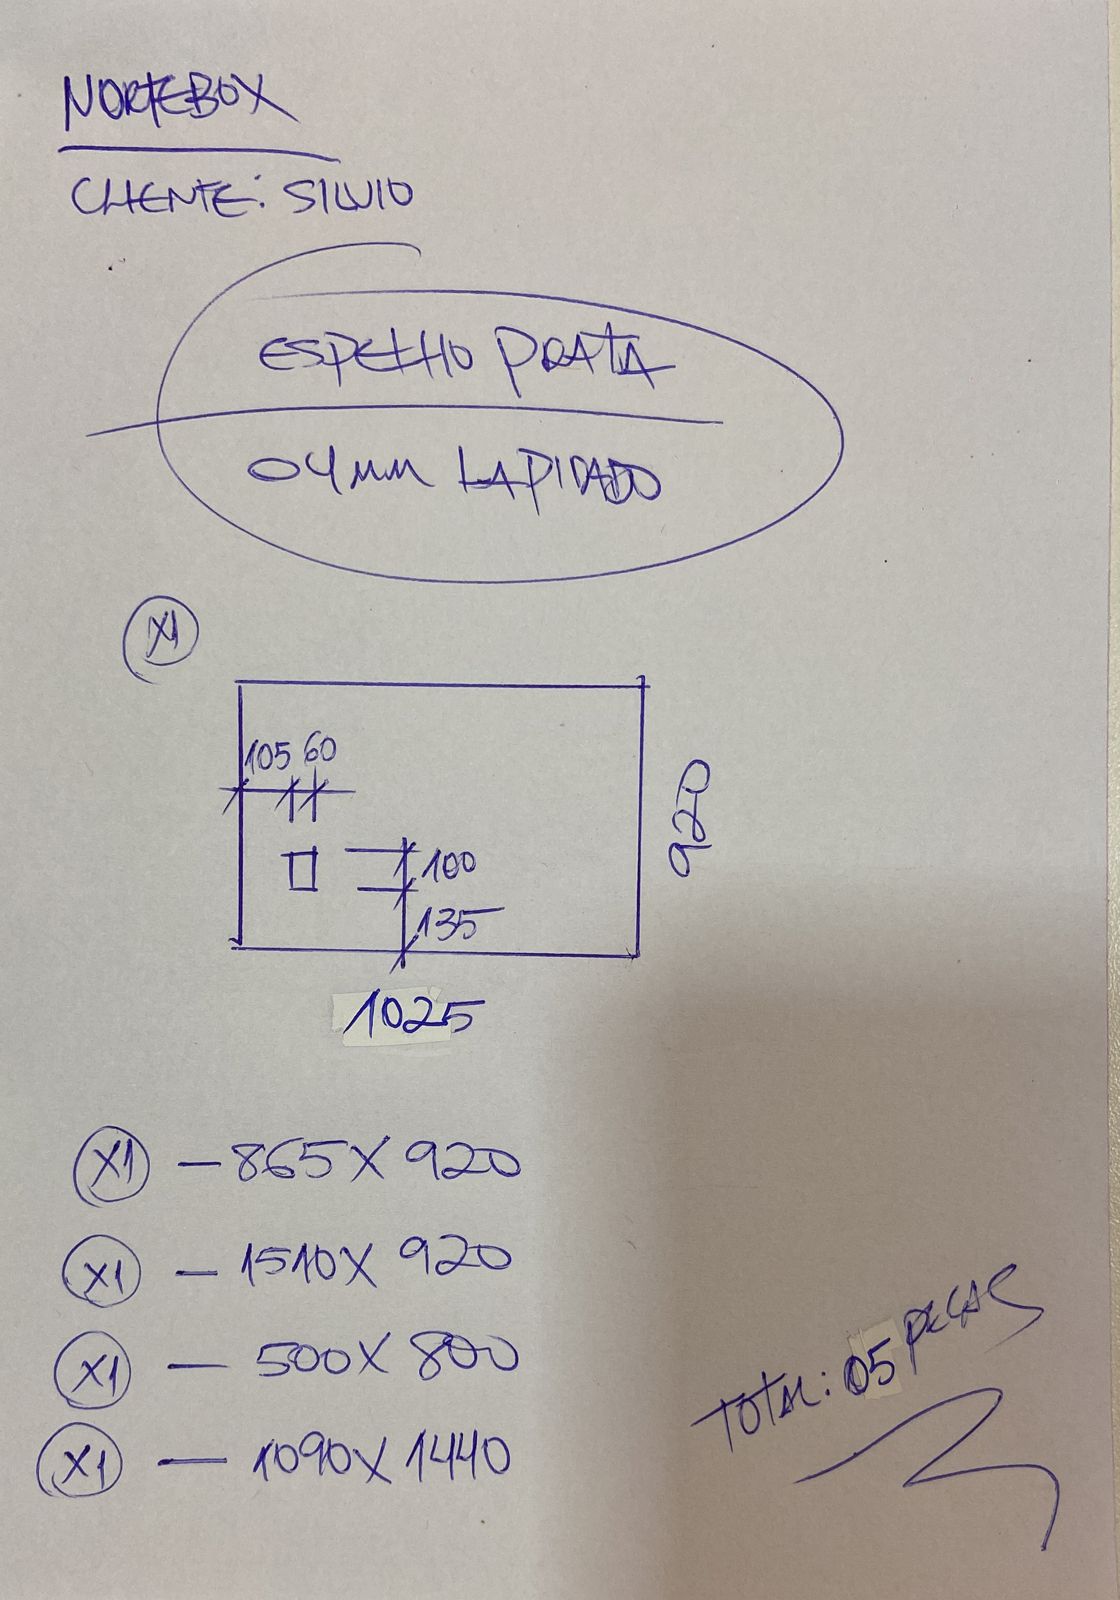 NORTEBOX
CLIENTE: SILVIO
ESPELHO PRATA
04MM LAPIDADO
X1
105 60
920
100
135
1025
X1 — 865 X 920
X1 — 1510 X 920
X1 — 500 X 800
X1 — 1090 X 1440
TOTAL: 05 PEÇAS